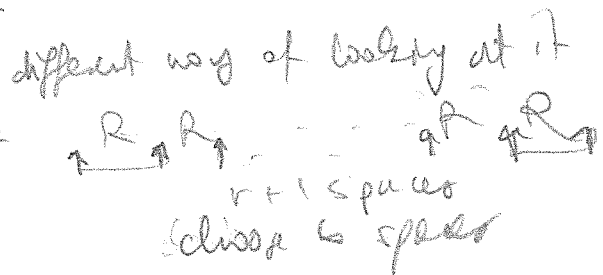 different way of looking at it
R R . . . . . R R
r + 1 spaces
choose 6 spaces